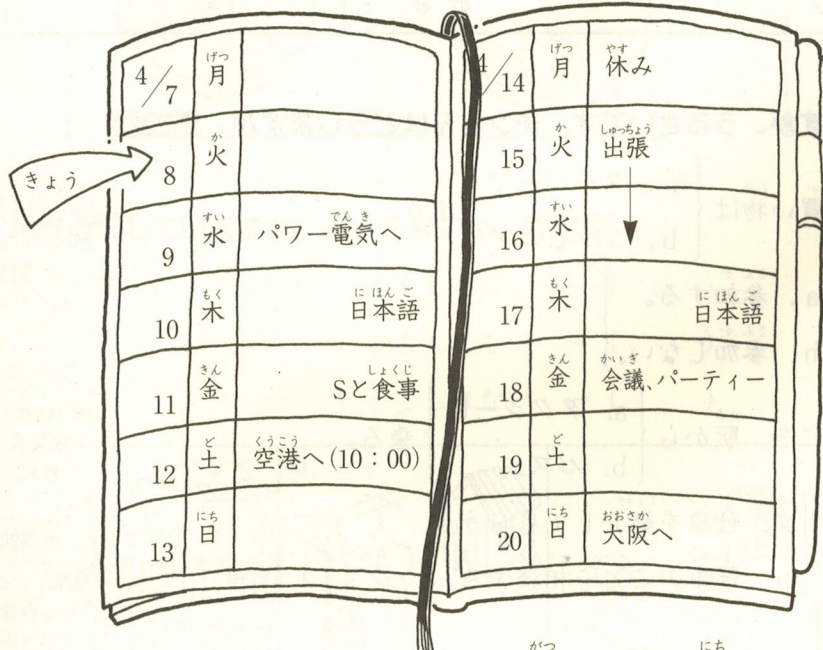 きょう
4/7 月 げつ
8 火 か
9 水 すい パワー電気へ でんき
10 木 もく 日本語 にほんご
11 金 きん Sと食事 しょくじ
12 土 ど 空港へ(10:00) くうこう
13 日 にち
4/14 月 げつ 休み やす
15 火 か 出張 しゅっちょう
16 水 すい
17 木 もく 日本語 にほんご
18 金 きん 会議、パーティー かいぎ
19 土 ど
20 日 にち 大阪へ おおさか
がつ にち